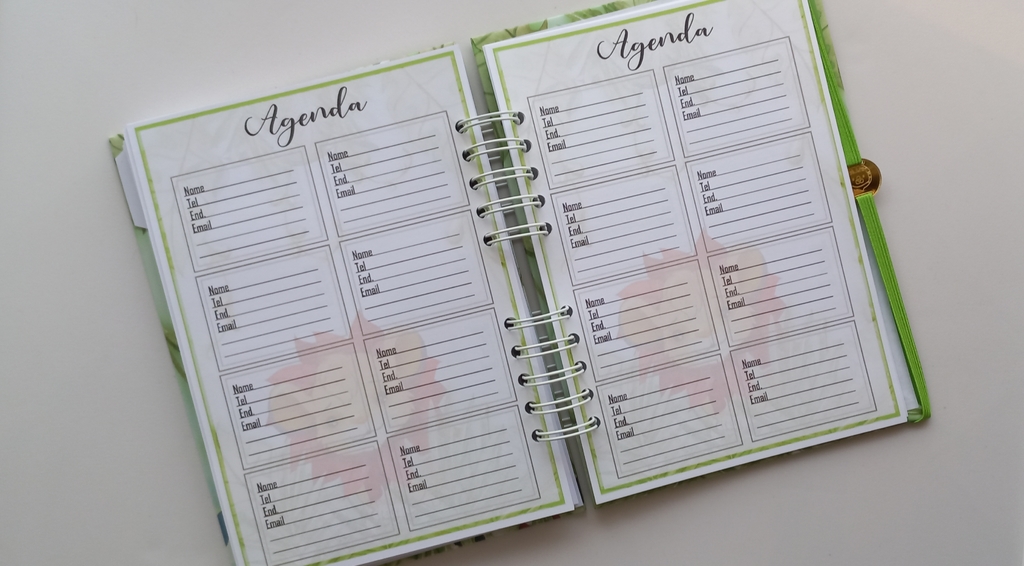 Agenda
Nome
Tel
End.
Email
Nome
Tel
End.
Email
Nome
Tel
End.
Email
Nome
Tel
End.
Email
Nome
Tel
End.
Email
Nome
Tel
End.
Email
Nome
Tel
End.
Email
Nome
Tel
End.
Email
Agenda
Nome
Tel
End.
Email
Nome
Tel
End.
Email
Nome
Tel
End.
Email
Nome
Tel
End.
Email
Nome
Tel
End.
Email
Nome
Tel
End.
Email
Nome
Tel
End.
Email
Nome
Tel
End.
Email